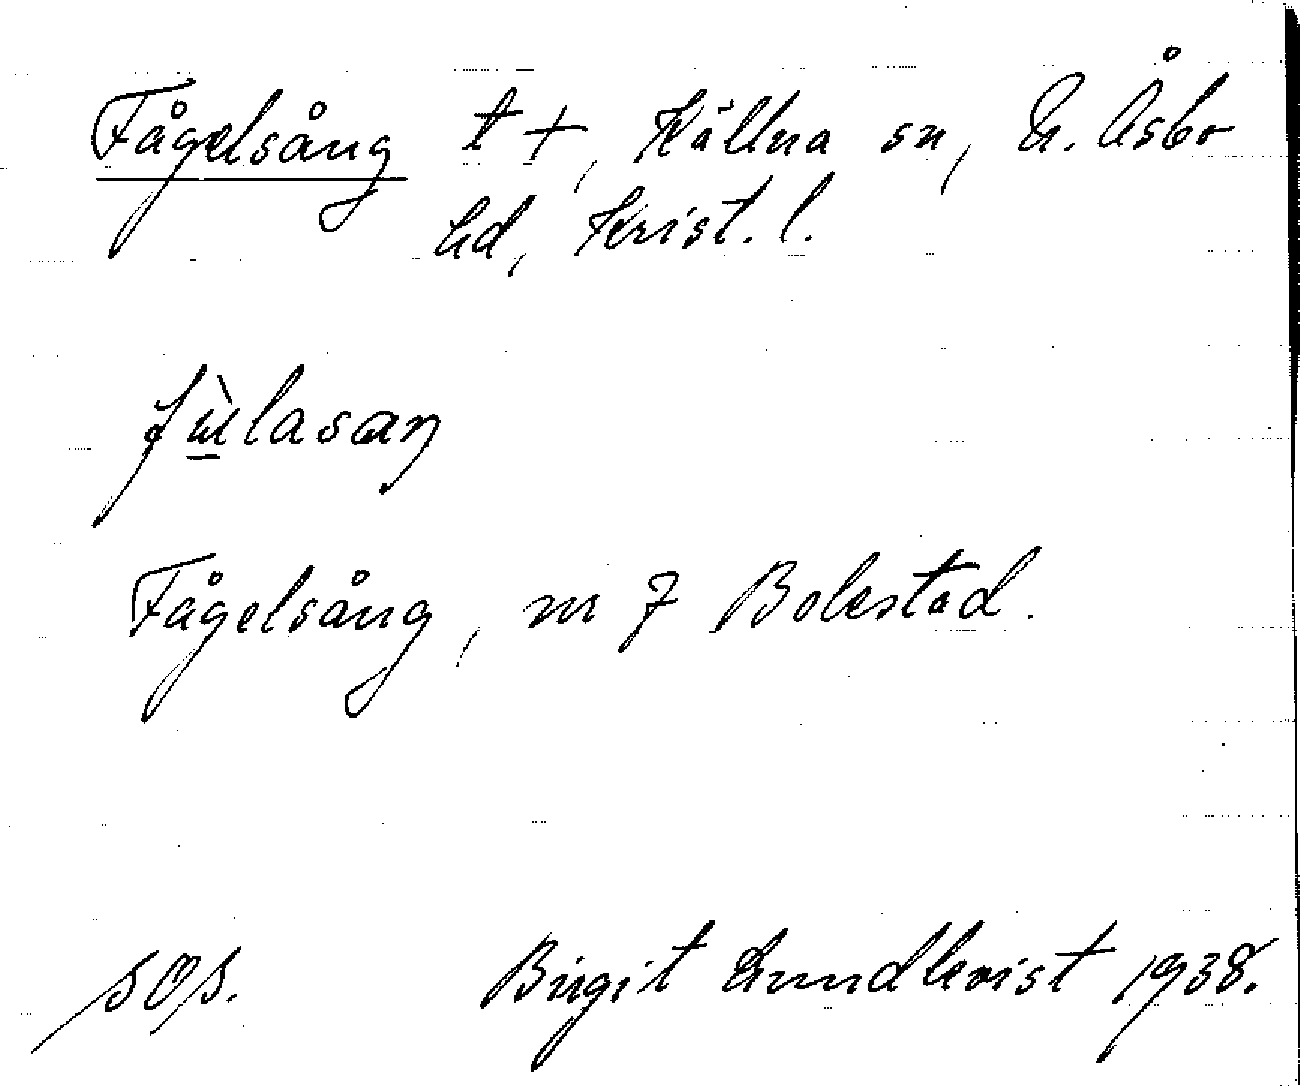 Fågelsång t +, Källna sn, N. Åsbo
hd, Krist. l.
Fågelsång, nr 7 Bolestad.
sop. Birgit Lundkvist 1938.